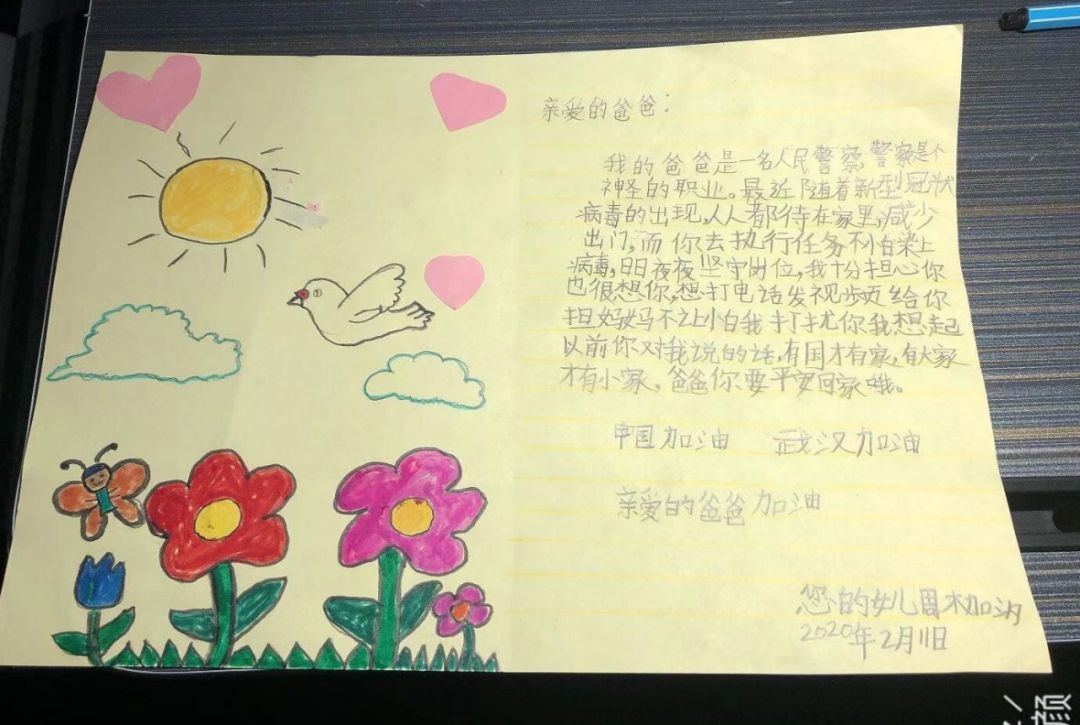 亲爱的爸爸:
我的爸爸是一名人民警察,警察是个
神圣的职业。最近随着新型冠状
病毒的出现,人人都待在家里,减少
出门,而你去执行任务不怕染上
病毒,日日夜夜坚守岗位,我十分担心你
也很想你,想打电话发视频给你
担妈妈不让怕我打扰你我想起
以前你对我说的话,有国才有家,有大家
才有小家,爸爸你要平安回家哦。
中国加油 武汉加油
亲爱的爸爸加油
您的女儿周
2020年2月11日
颜